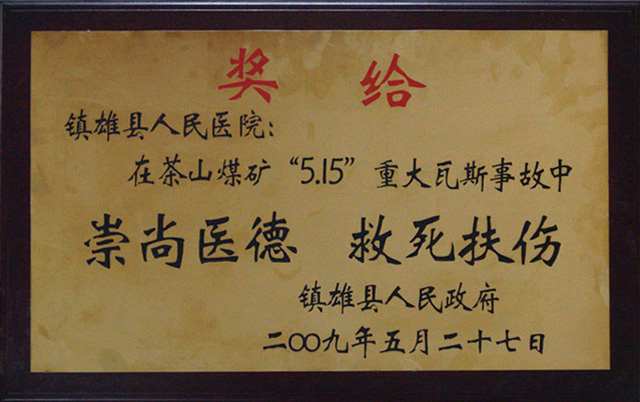 奖 给
镇雄县人民医院：
在茶山煤矿“5.15”重大瓦斯事故中
崇尚医德 救死扶伤
镇雄县人民政府
二〇〇九年五月二十七日